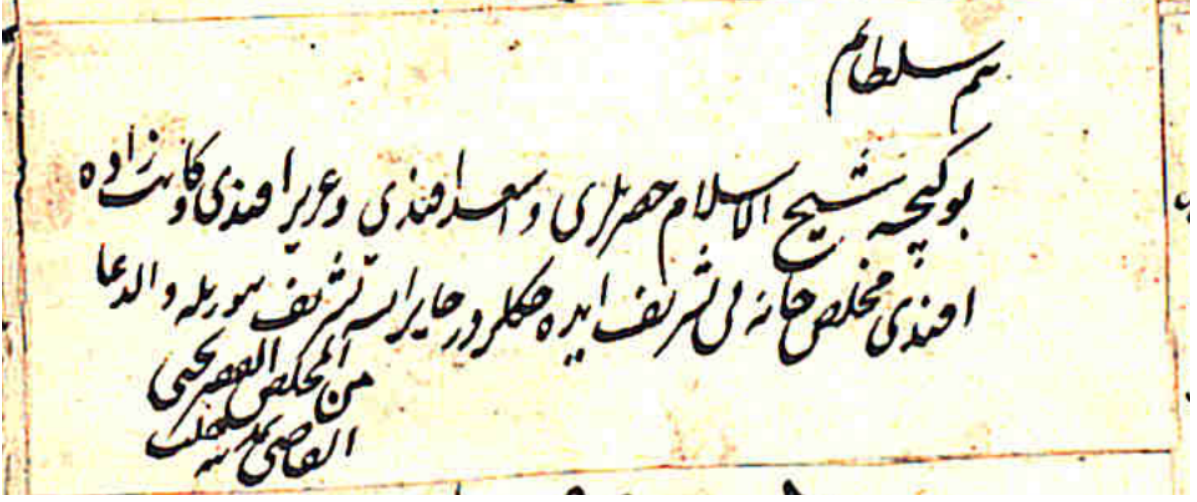 بنم سلطانم
بو كیجه شیخ الاسلام حضرتلری و اسعد افندی و عزیز افندی و كاتب زاده
افندی مخلص خانه لرین تشریف ایده جكلردر جایز ایسه تشریف بیوریله والدعا
من المخلص الفقیر یحیی
القاضی بمدینه حلب